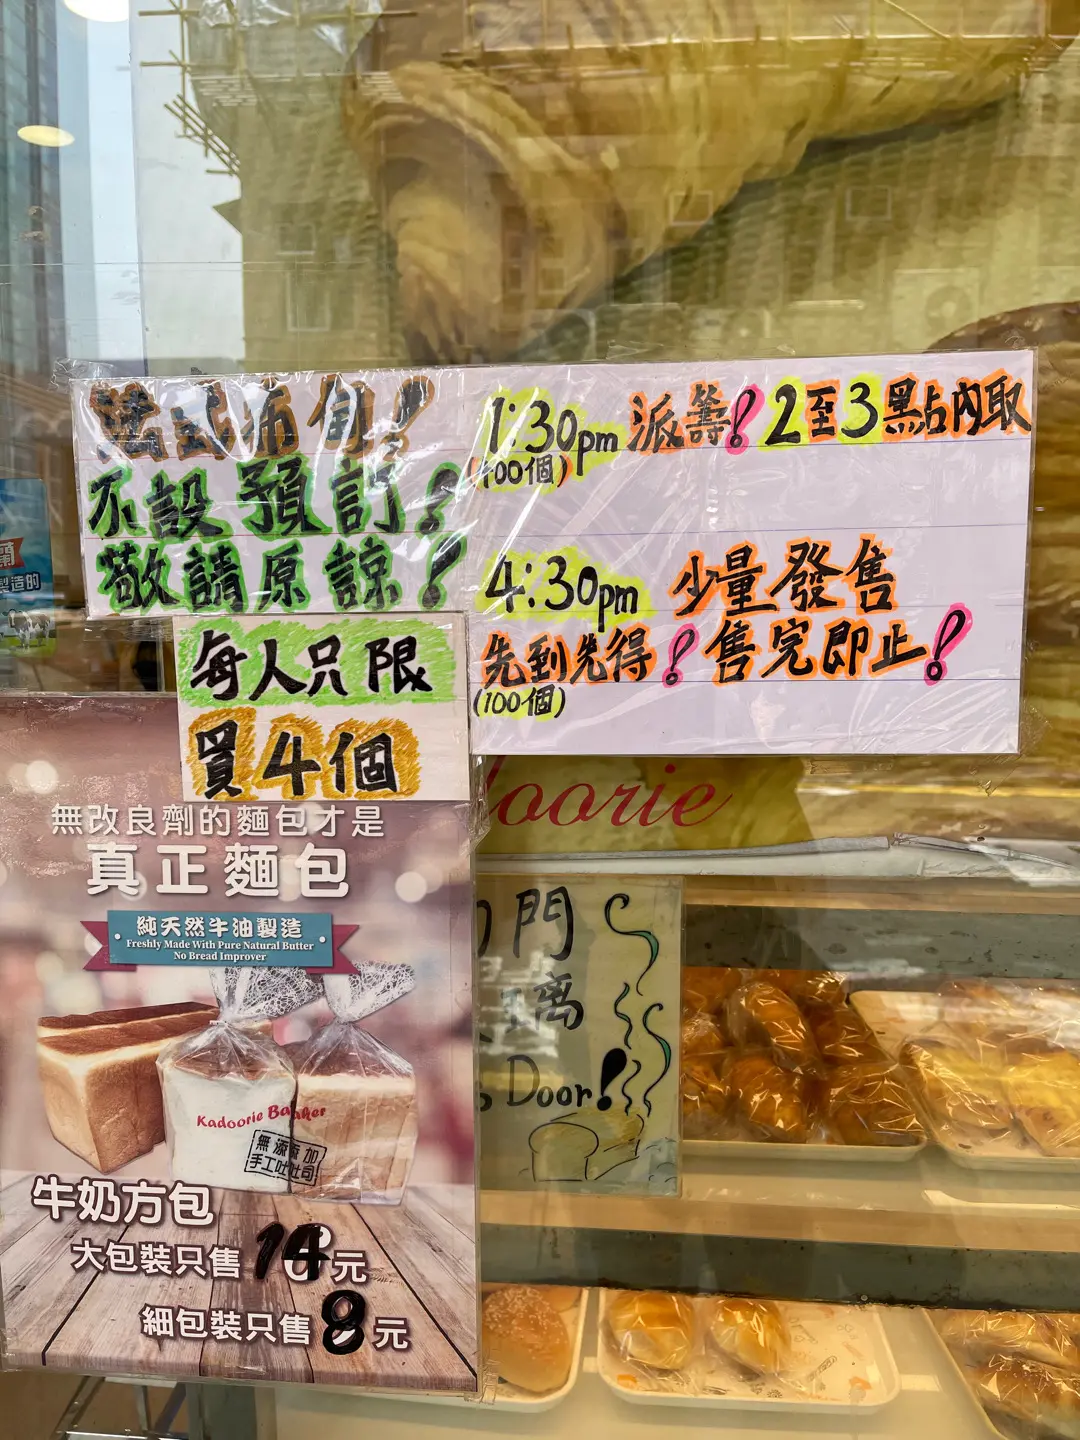 法式布甸！
不設預訂！
敬請原諒！
1:30pm 派籌！2至3點內取
(100個)
4:30pm 少量發售
先到先得！售完即止！
(100個)
每人只限
買4個
無改良劑的麵包才是
真正麵包
純天然牛油製造
Freshly Made With Pure Natural Butter
No Bread Improver
Kadoorie Baker
無添加
手工吐司
牛奶方包
大包裝只售14元
細包裝只售8元
doorie
門
離
Door!
製造的